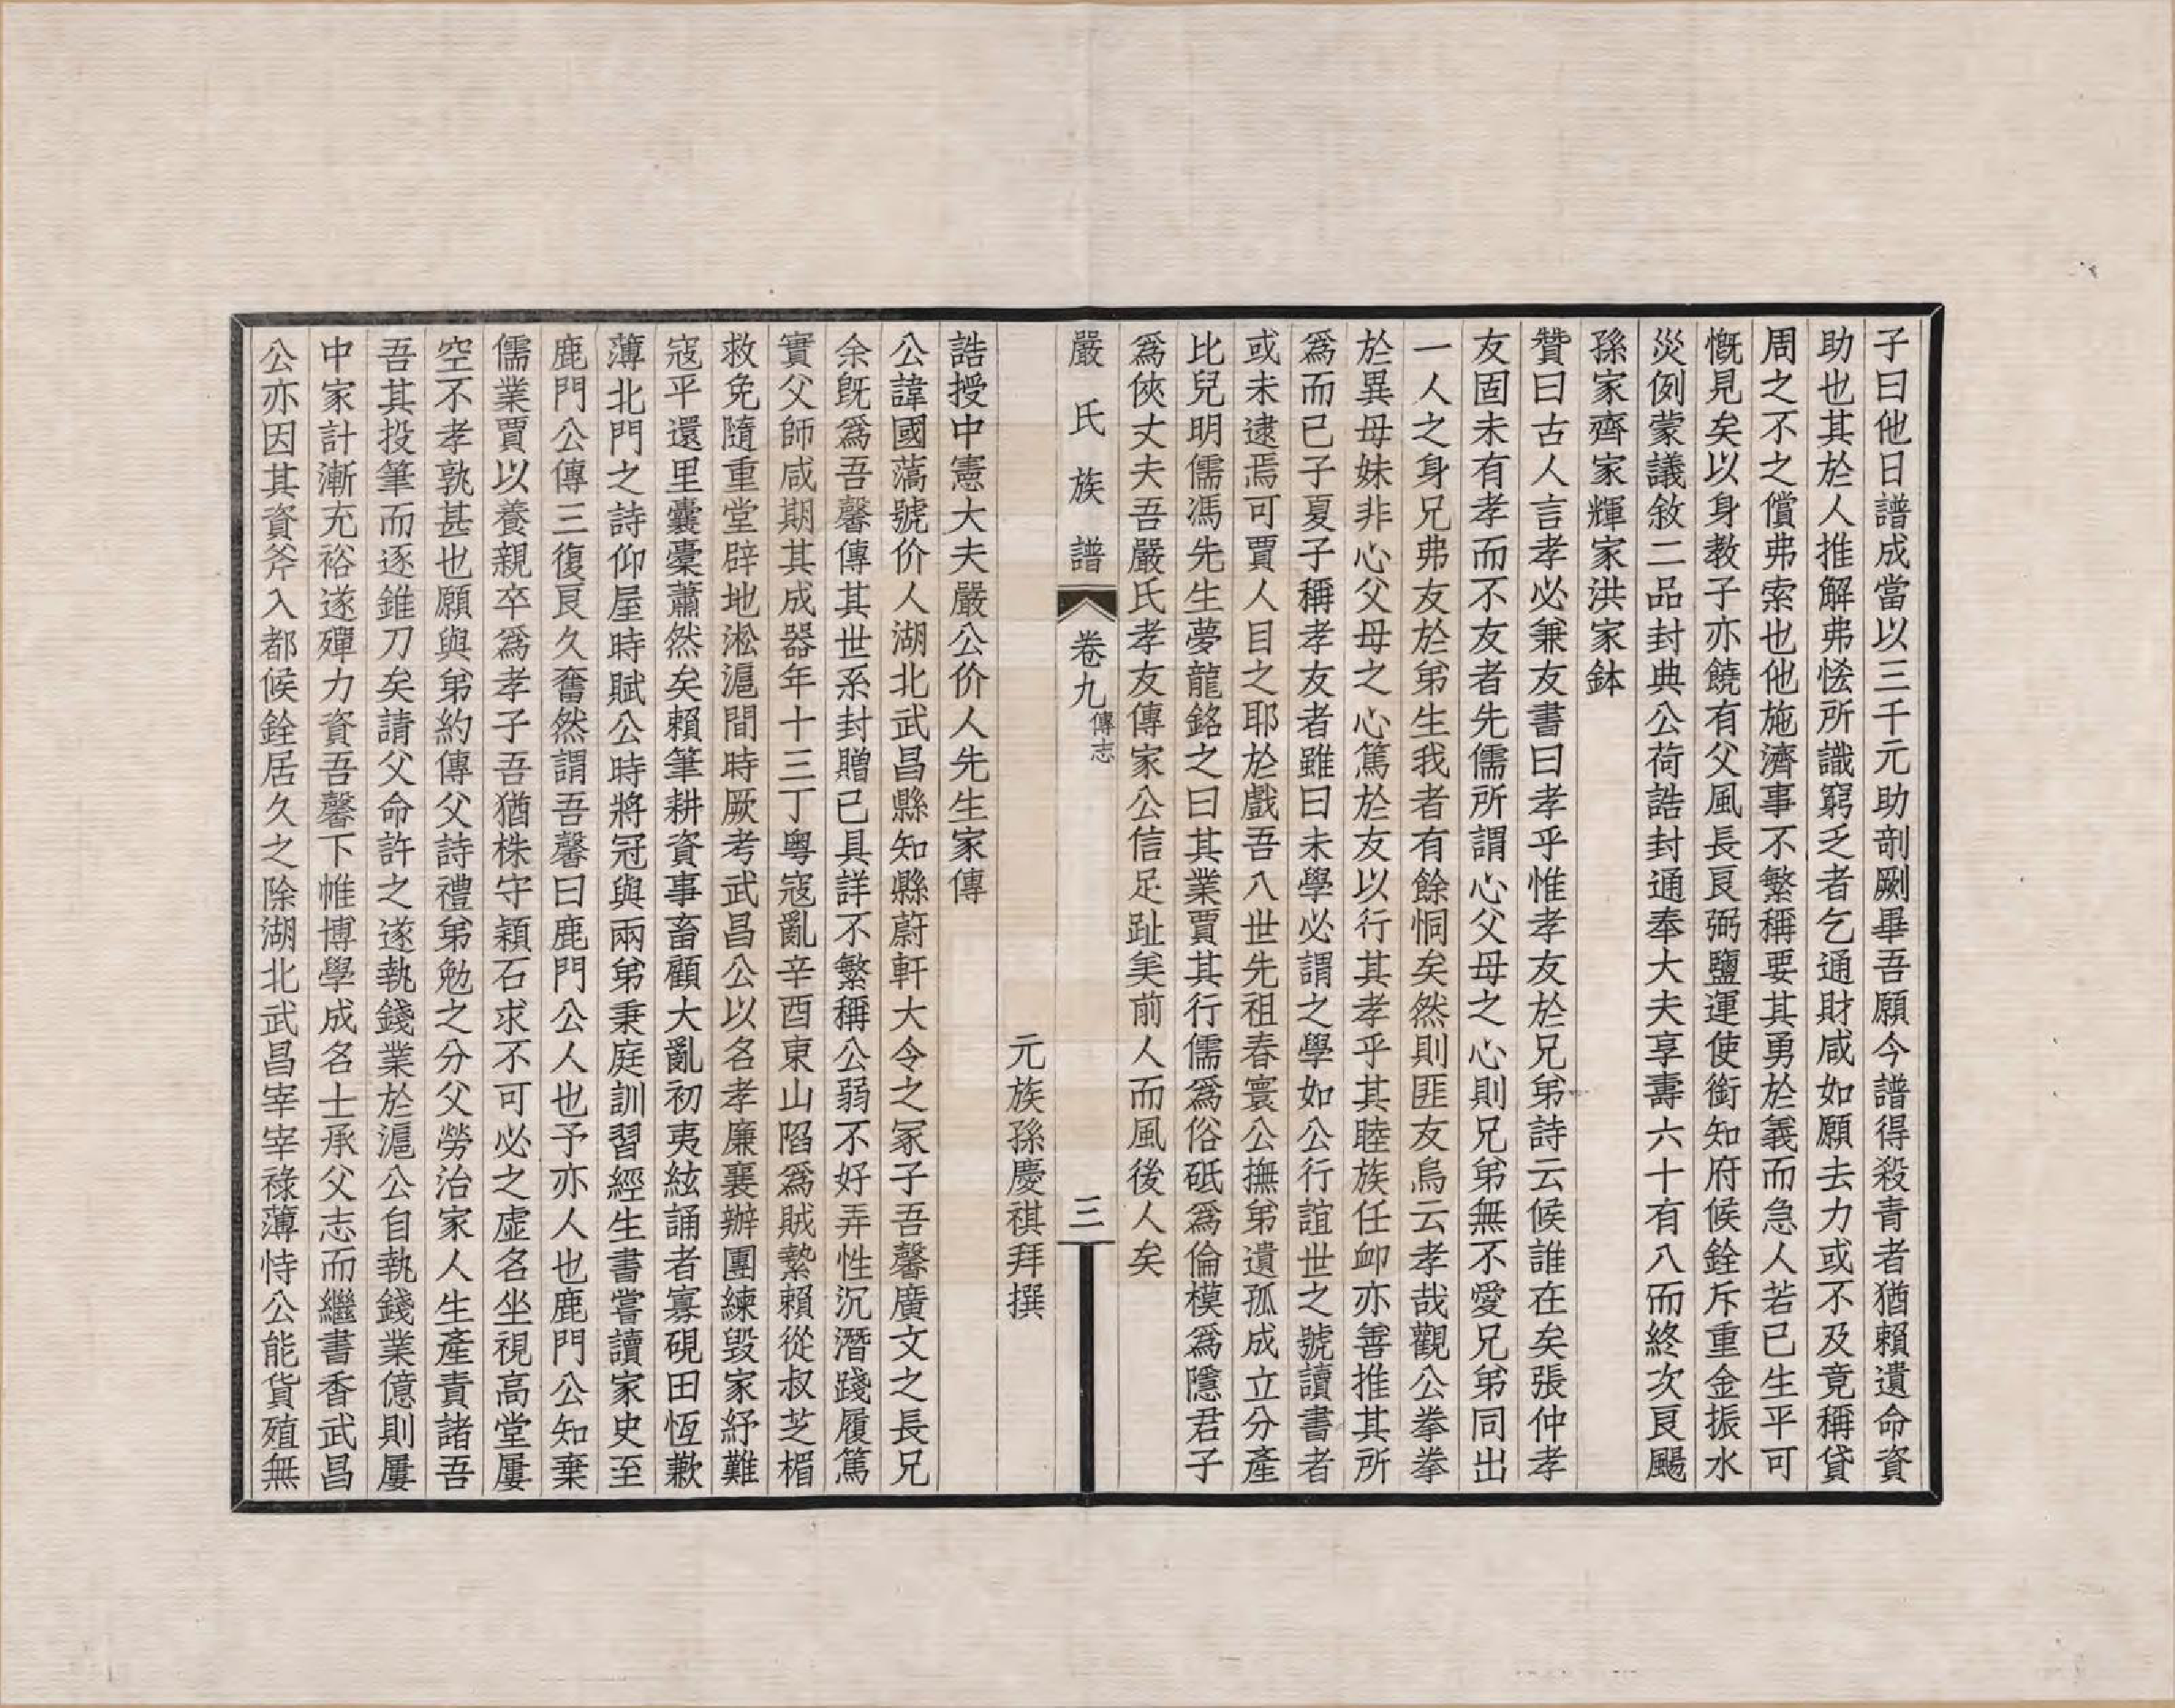 子曰他日譜成當以三千元助剖劂畢吾願今譜得殺青者猶賴遺命資
助也其於人推解弗恡所識窮乏者乞通財咸如願去力或不及竟稱貸
周之不之償弗索也他施濟事不繁稱要其勇於義而急人若已生平可
慨見矣以身教子亦饒有父風長艮弼鹽運使銜知府候銓斥重金振水
災例蒙議敘二品封典公荷誥封通奉大夫享壽六十有八而終次艮颺
孫家齊家輝家洪家鉢
贊曰古人言孝必兼友書曰孝乎惟孝友於兄弟詩云候誰在矣張仲孝
友固未有孝而不友者先儒所謂心父母之心則兄弟無不愛兄弟同出
一人之身兄弗友於弟生我者有餘恫矣然則匪友烏云孝哉觀公拳拳
於異母妹非心父母之心篤於友以行其孝乎其睦族任卹亦善推其所
爲而已子夏子稱孝友者雖曰未學必謂之學如公行誼世之號讀書者
或未逮焉可賈人目之耶於戲吾八世先祖春寰公撫弟遺孤成立分產
比兒明儒馮先生夢龍銘之曰其業賈其行儒爲俗砥爲倫模爲隱君子
爲俠丈夫吾嚴氏孝友傳家公信足趾美前人而風後人矣
嚴氏族譜 卷九 傳志 三
元族孫慶祺拜撰
誥授中憲大夫嚴公价人先生家傳
公諱國藹號价人湖北武昌縣知縣蔚軒大令之冢子吾馨廣文之長兄
余旣爲吾馨傳其世系封贈已具詳不繁稱公弱不好弄性沉潛踐履篤
實父師咸期其成器年十三丁粵寇亂辛酉東山陷爲賊縶賴從叔芝楣
救免隨重堂辟地淞滬間時厥考武昌公以名孝廉襄辦團練毀家紓難
寇平還里囊橐蕭然矣賴筆耕資事畜顧大亂初夷絃誦者寡硯田恆歉
薄北門之詩仰屋時賦公時將冠與兩弟秉庭訓習經生書嘗讀家史至
鹿門公傳三復艮久奮然謂吾馨曰鹿門公人也予亦人也鹿門公知棄
儒業賈以養親卒爲孝子吾猶株守穎石求不可必之虛名坐視高堂屢
空不孝孰甚也願與弟約傳父詩禮弟勉之分父勞治家人生產責諸吾
吾其投筆而逐錐刀矣請父命許之遂執錢業於滬公自執錢業億則屢
中家計漸充裕遂殫力資吾馨下帷博學成名士承父志而繼書香武昌
公亦因其資斧入都候銓居久之除湖北武昌宰宰祿薄恃公能貨殖無